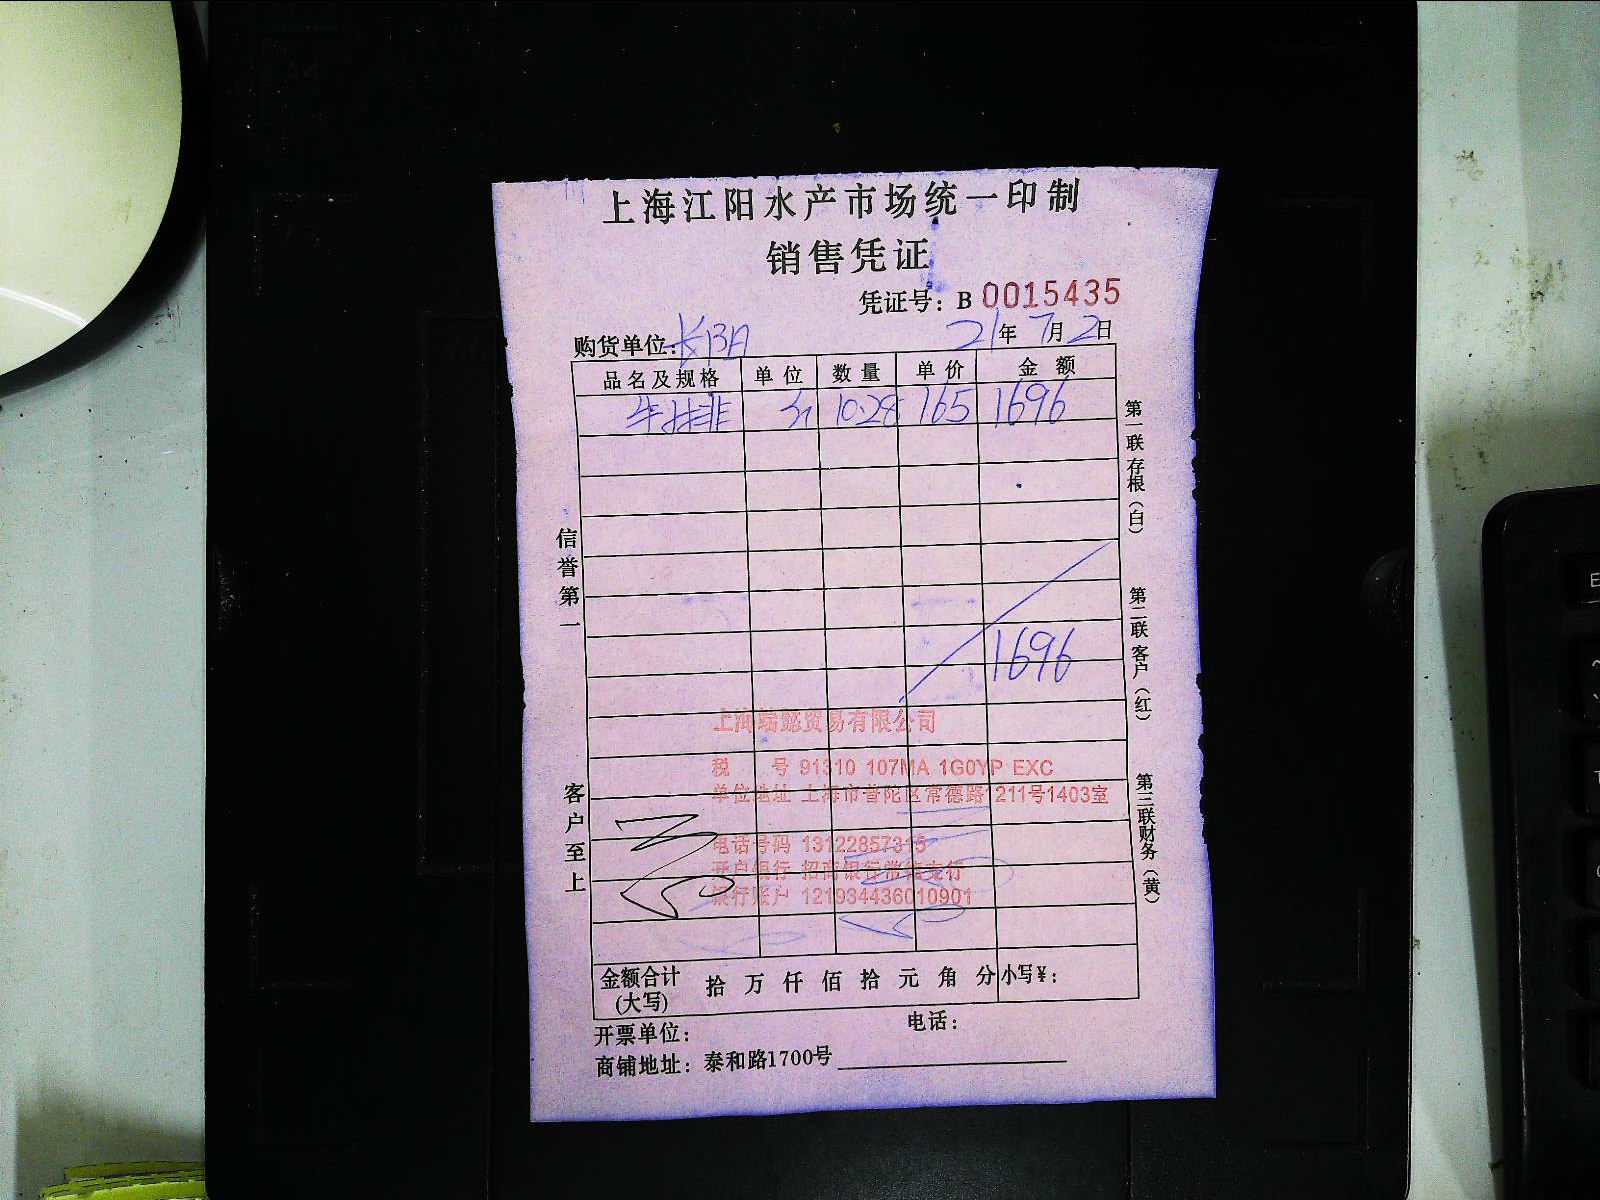 上海江阳水产市场统一印制
销售凭证
凭证号：B 0015435
购货单位：
21年7月2日
品名及规格 单位 数量 单价 金额
牛排 斤 10.28 165 1696
1696
信誉第一
客户至上
第一联存根（白）
第二联客户（红）
第三联财务（黄）
上海瑞懿贸易有限公司
税 号 91310 107MA 1G0YP EXC
单位地址 上海市普陀区常德路1211号1403室
电话号码 13122857315
开户银行 招商银行常德支行
银行账户 121934436010901
金额合计（大写） 拾 万 仟 佰 拾 元 角 分 小写¥：
开票单位： 电话：
商铺地址：泰和路1700号